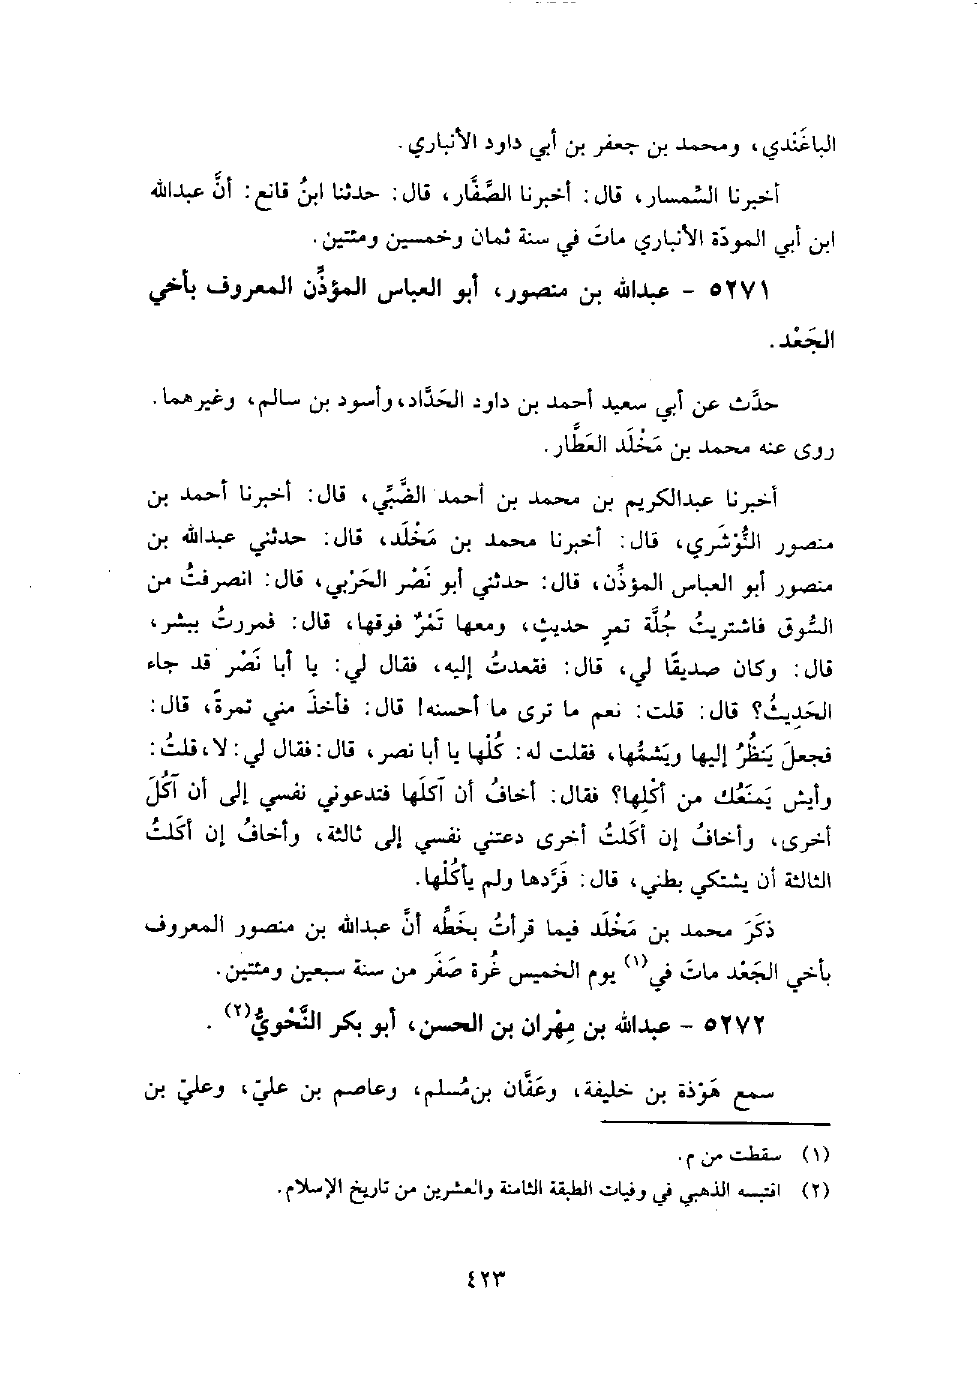 الباغَنْدي، ومحمد بن جعفر بن أبي داود الأنباري.
أخبرنا السِّمسار، قال: أخبرنا الصَّفَّار، قال: حدثنا ابنُ قانع: أنَّ عبدالله
ابن أبي المودّة الأنباري ماتَ في سنة ثمان وخمسين ومئتين.
٥٢٧١ - عبدالله بن منصور، أبو العباس المؤذِّن المعروف بأخي
الجَعْد.
حدَّث عن أبي سعيد أحمد بن داود الحَدَّاد، وأسود بن سالم، وغيرهما.
روى عنه محمد بن مَخْلَد العَطَّار.
أخبرنا عبدالكريم بن محمد بن أحمد الضَّبِّي، قال: أخبرنا أحمد بن
منصور النُّوْشَري، قال: أخبرنا محمد بن مَخْلَد، قال: حدثني عبدالله بن
منصور أبو العباس المؤذِّن، قال: حدثني أبو نَصْر الحَرْبي، قال: انصرفتُ من
السُّوق فاشتريتُ جُلَّة تمرٍ حديثٍ، ومعها تَمْرٌ فوقها، قال: فمررتُ ببشر،
قال: وكان صديقًا لي، قال: فقعدتُ إليه، فقال لي: يا أبا نَصْر قد جاء
الحَدِيثُ؟ قال: قلت: نعم ما ترى ما أحسنه! قال: فأخذَ مني تمرةً، قال:
فجعلَ يَنظُرُ إليها ويَشمُّها، فقلت له: كُلْها يا أبا نصر، قال: فقال لي: لا، قلتُ:
وأيش يَمنَعُك من أكْلِها؟ فقال: أخافُ أن آكلَها فتدعوني نفسي إلى أن آكُلَ
أخرى، وأخافُ إن أكَلتُ أخرى دعتني نفسي إلى ثالثة، وأخافُ إن أكَلتُ
الثالثة أن يشتكي بطني، قال: فَرَّدها ولم يأكُلْها.
ذكَرَ محمد بن مَخْلَد فيما قرأتُ بخَطِّه أنَّ عبدالله بن منصور المعروف
بأخي الجَعْد ماتَ في(١) يوم الخميس غُرة صَفَر من سنة سبعين ومئتين.
٥٢٧٢ - عبدالله بن مِهْران بن الحسن، أبو بكر النَّحْويُّ(٢).
سمع هَوْذة بن خليفة، وعَفَّان بن مُسلم، وعاصم بن عليّ، وعليّ بن
(١) سقطت من م.
(٢) اقتبسه الذهبي في وفيات الطبقة الثامنة والعشرين من تاريخ الإسلام.
٤٢٣